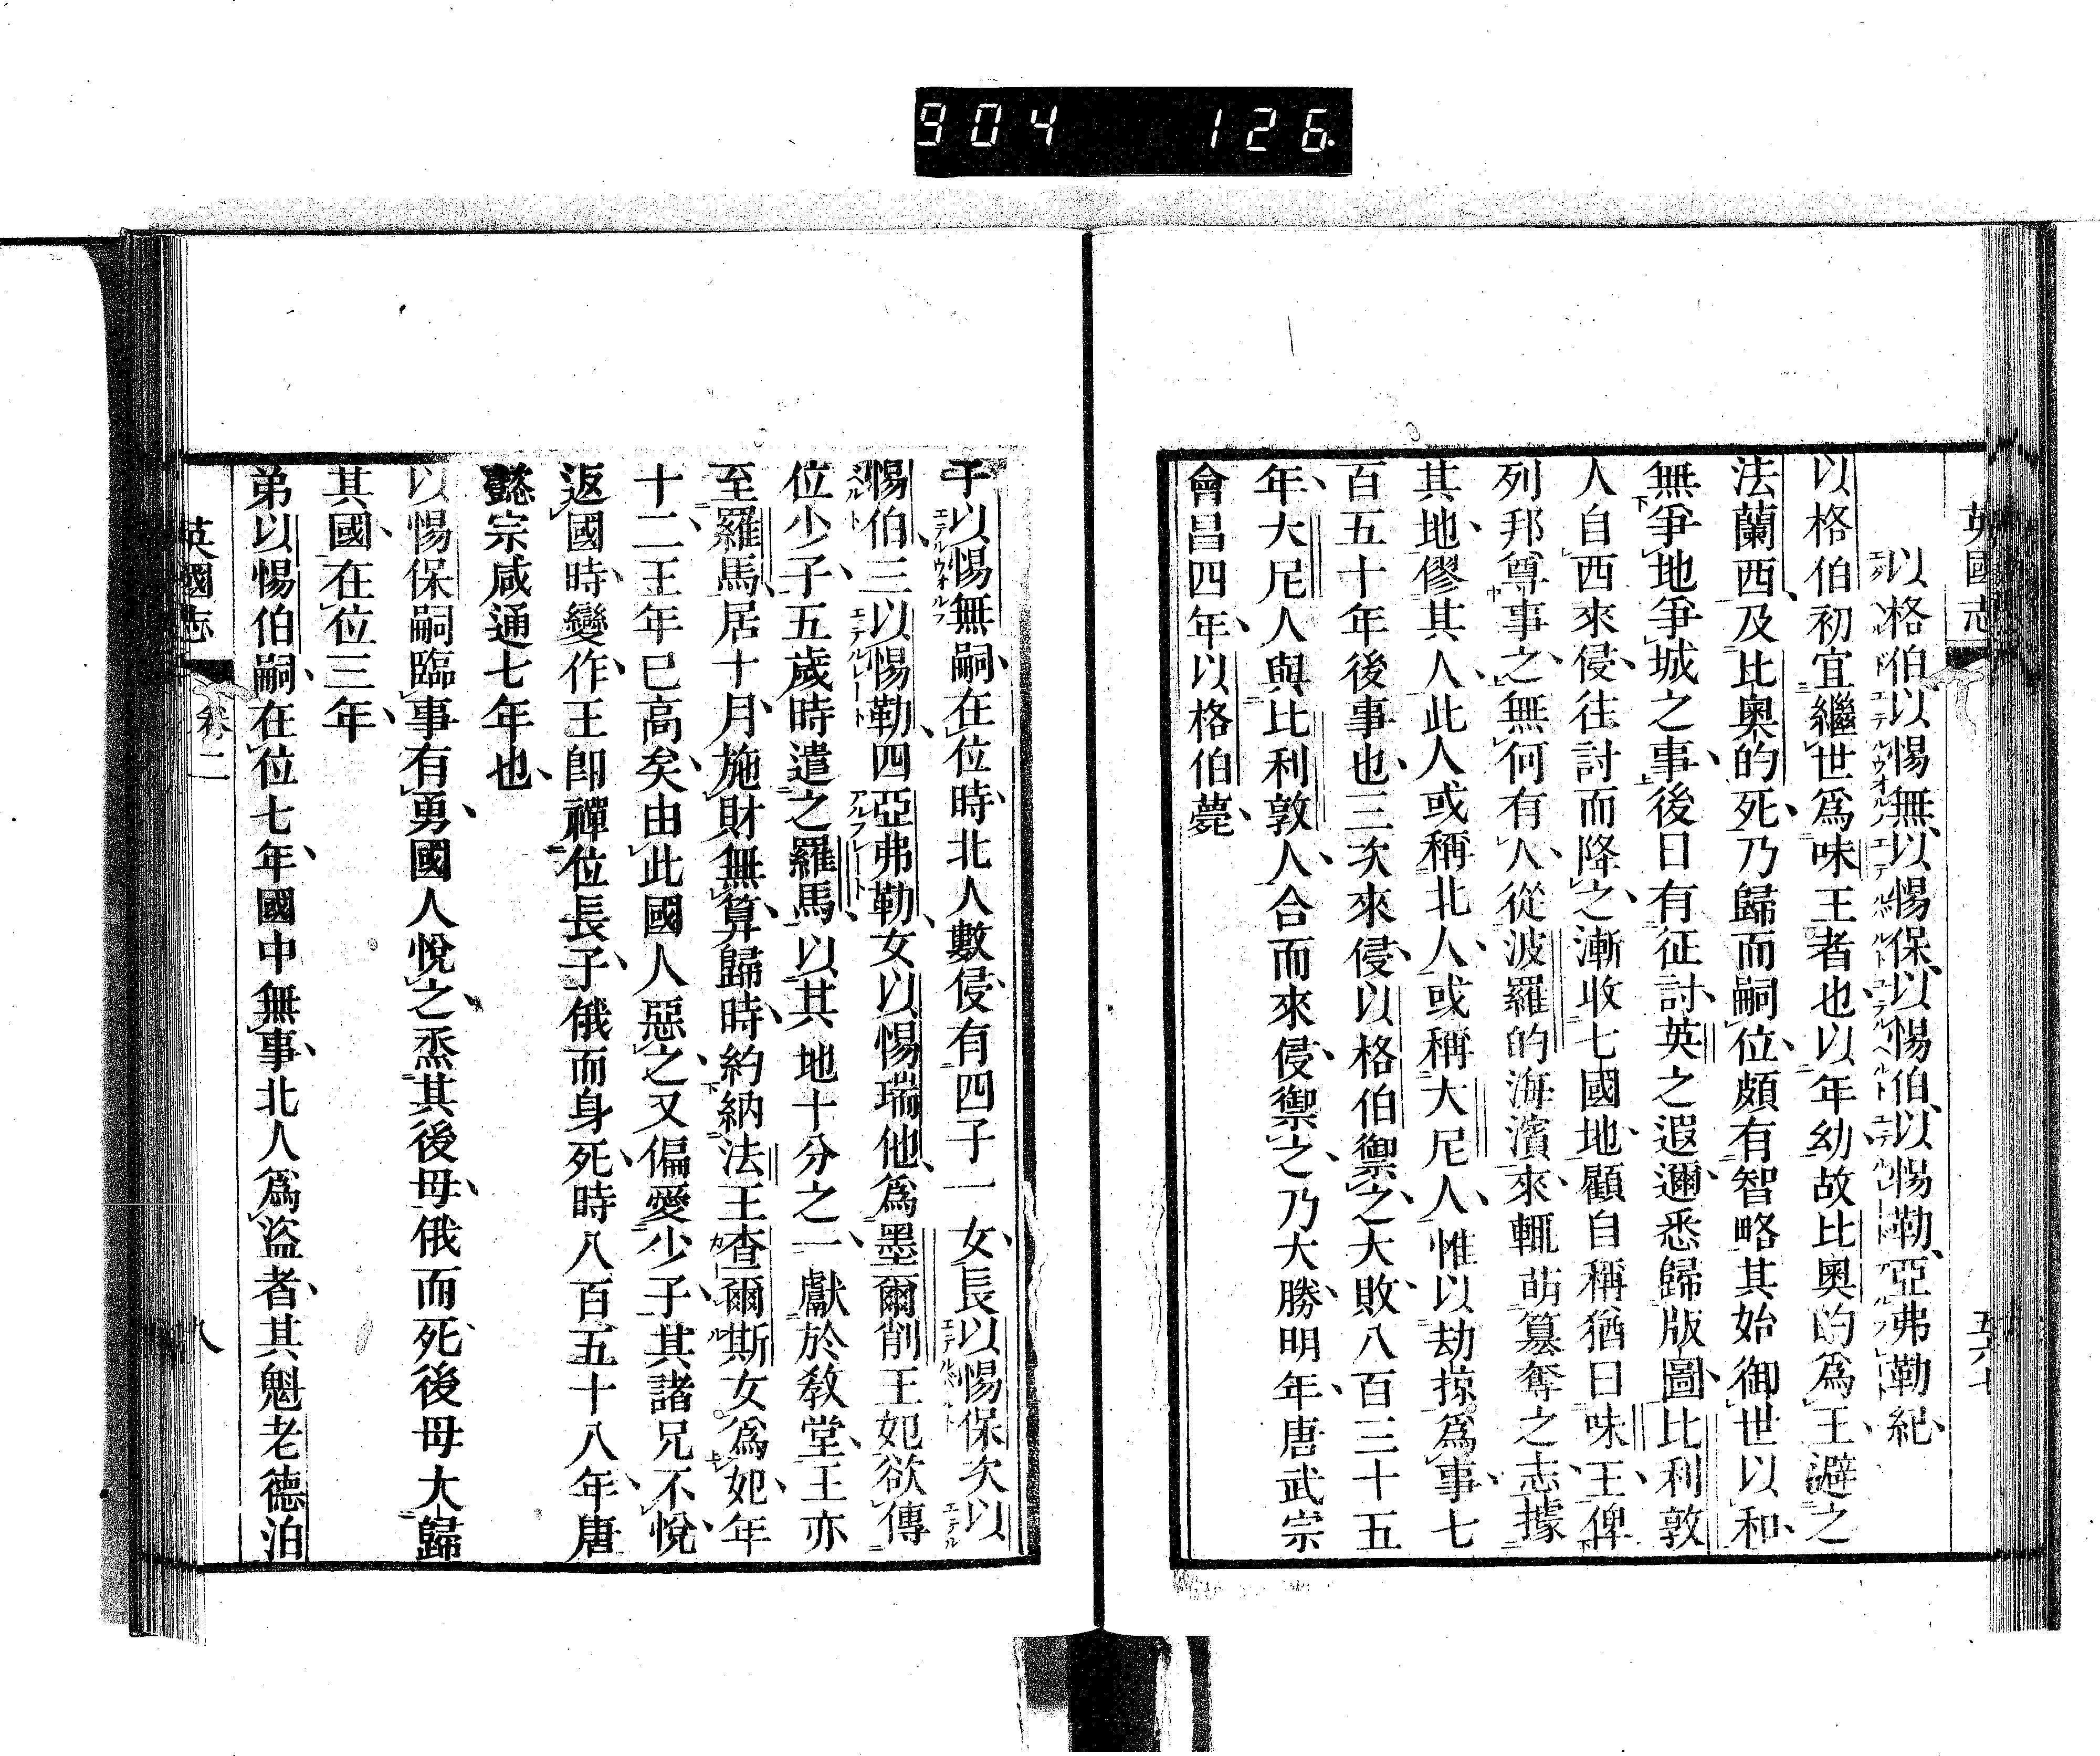 904 126
英國志
以格伯以惕無以惕保以惕伯以惕勒亞弗勒紀
以格伯初宜繼世爲味王者也以年幼故比奧的爲王避之
法蘭西及比奧的死乃歸而嗣位頗有智略其始御世以和
無爭地爭城之事後日有征討英之遐邇悉歸版圖比利敦
人自西來侵往討而降之漸收七國地顧自稱猶曰味王俾
列邦尊事之無何有人從波羅的海濱來輒萌篡奪之志據
其地僇其人此人或稱北人或稱大尼人惟以劫掠爲事七
百五十年後事也三次來侵以格伯禦之大敗八百三十五
年大尼人與比利敦人合而來侵禦之乃大勝明年唐武宗
會昌四年以格伯薨
子以惕無嗣在位時北人數侵有四子一女長以惕保次以
惕伯三以惕勒四亞弗勒女以惕瑞他爲墨爾削王妃欲傳
位少子五歲時遣之羅馬以其地十分之一獻於敎堂王亦
至羅馬居十月施財無算歸時約納法王查爾斯女爲妃年
十二王年已高矣由此國人惡之又偏愛少子其諸兄不悅
返國時變作王卽禪位長子俄而身死時八百五十八年唐
懿宗咸通七年也
以惕保嗣臨事有勇國人悅之烝其後母俄而死後母大歸
其國在位三年
弟以惕伯嗣在位七年國中無事北人爲盜者其魁老德泊
英國志 卷二 八